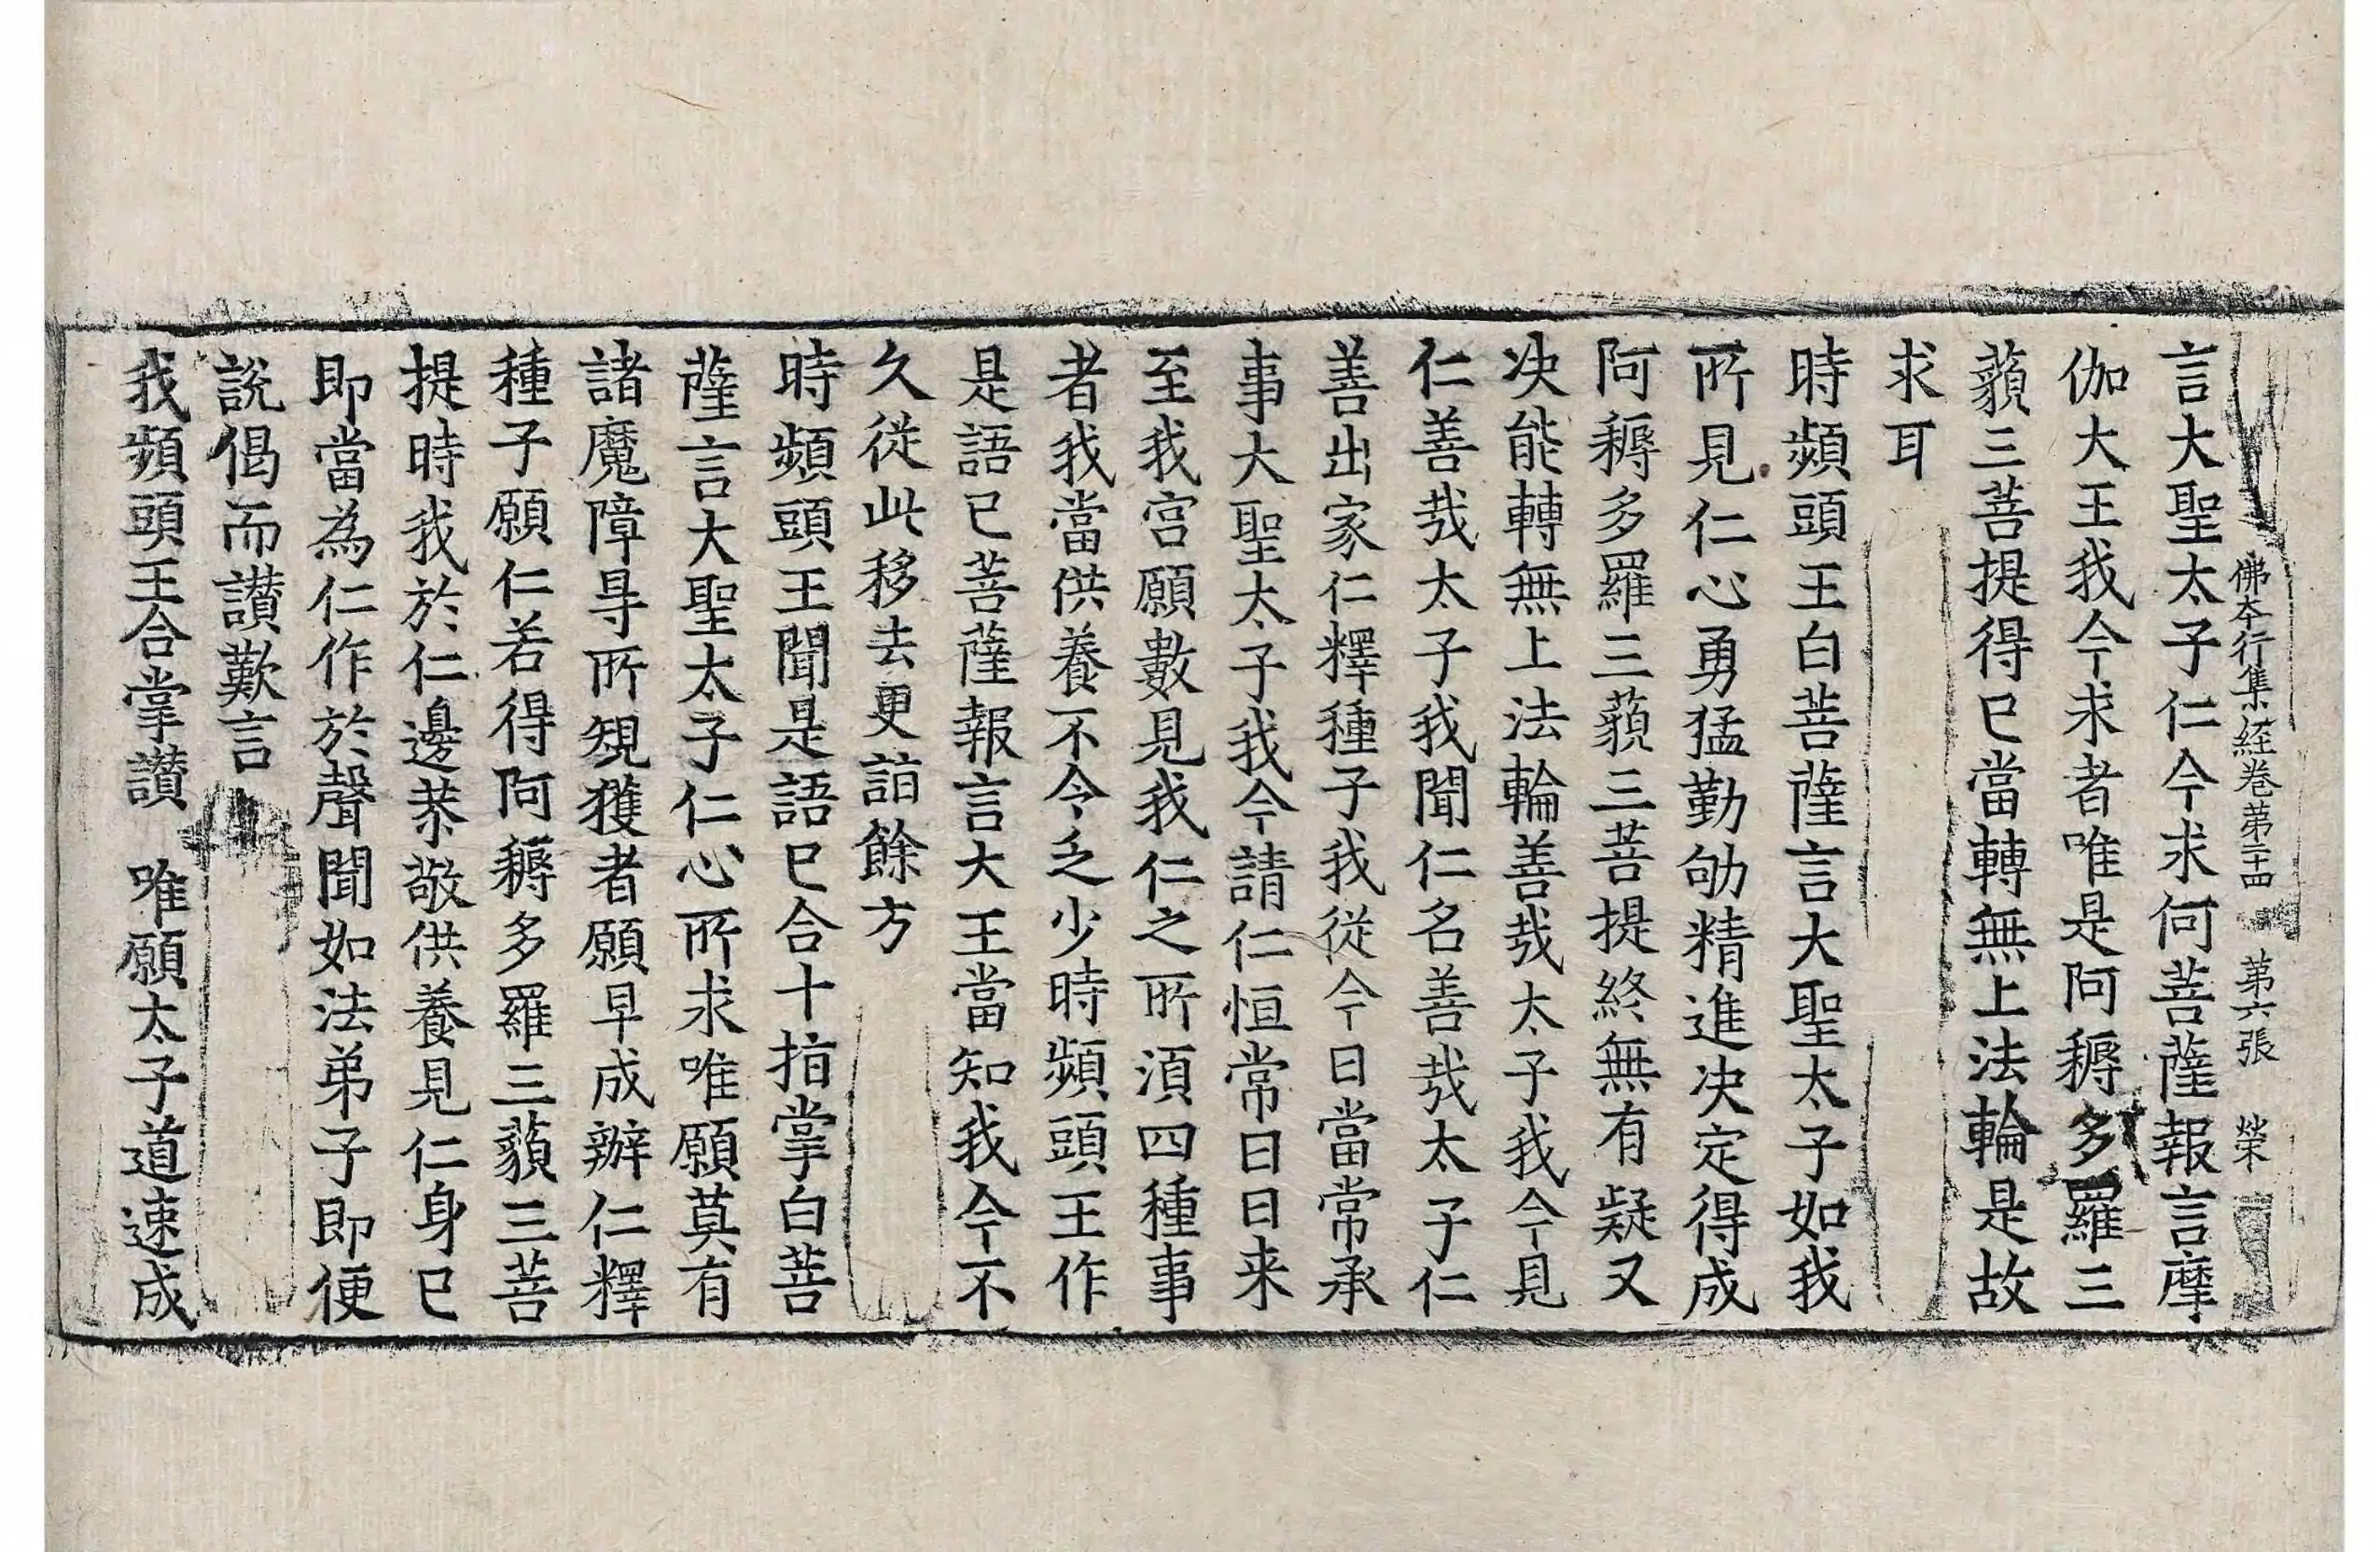 佛本行集經卷第二十四　第六張　榮
言大聖太子仁今求何菩薩報言摩
伽大王我今求者唯是阿耨多羅三
藐三菩提得已當轉無上法輪是故
求耳
時頻頭王白菩薩言大聖太子如我
所見仁心勇猛勤劬精進决定得成
阿耨多羅三藐三菩提終無有疑又
决能轉無上法輪善哉太子我今見
仁善哉太子我聞仁名善哉太子仁
善出家仁釋種子我從今日當常承
事大聖太子我今請仁恒常日日来
至我宫願數見我仁之所須四種事
者我當供養不令乏少時頻頭王作
是語已菩薩報言大王當知我今不
久從此移去更詣餘方
時頻頭王聞是語已合十指掌白菩
薩言大聖太子仁心所求唯願莫有
諸魔障㝵所覌獲者願早成辦仁釋
種子願仁若得阿耨多羅三藐三菩
提時我於仁邊恭敬供養見仁身已
即當為仁作於聲聞如法弟子即便
說偈而讃歎言
我頻頭王合掌讃　唯願太子道速成